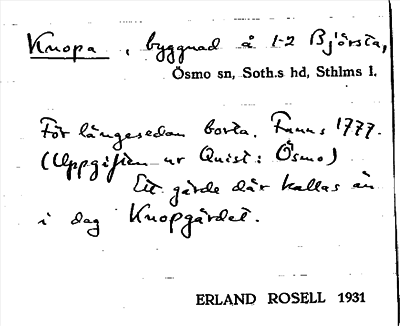 Knopa, byggnad å 1-2 Björsta,
Ösmo sn, Soth.s hd, Sthlms l.
För längesedan borta. Fanns 1777.
(Uppgiften ur Quist: Ösmo)
Ett gärde där kallas än
i dag Knopgärdet.
ERLAND ROSELL 1931